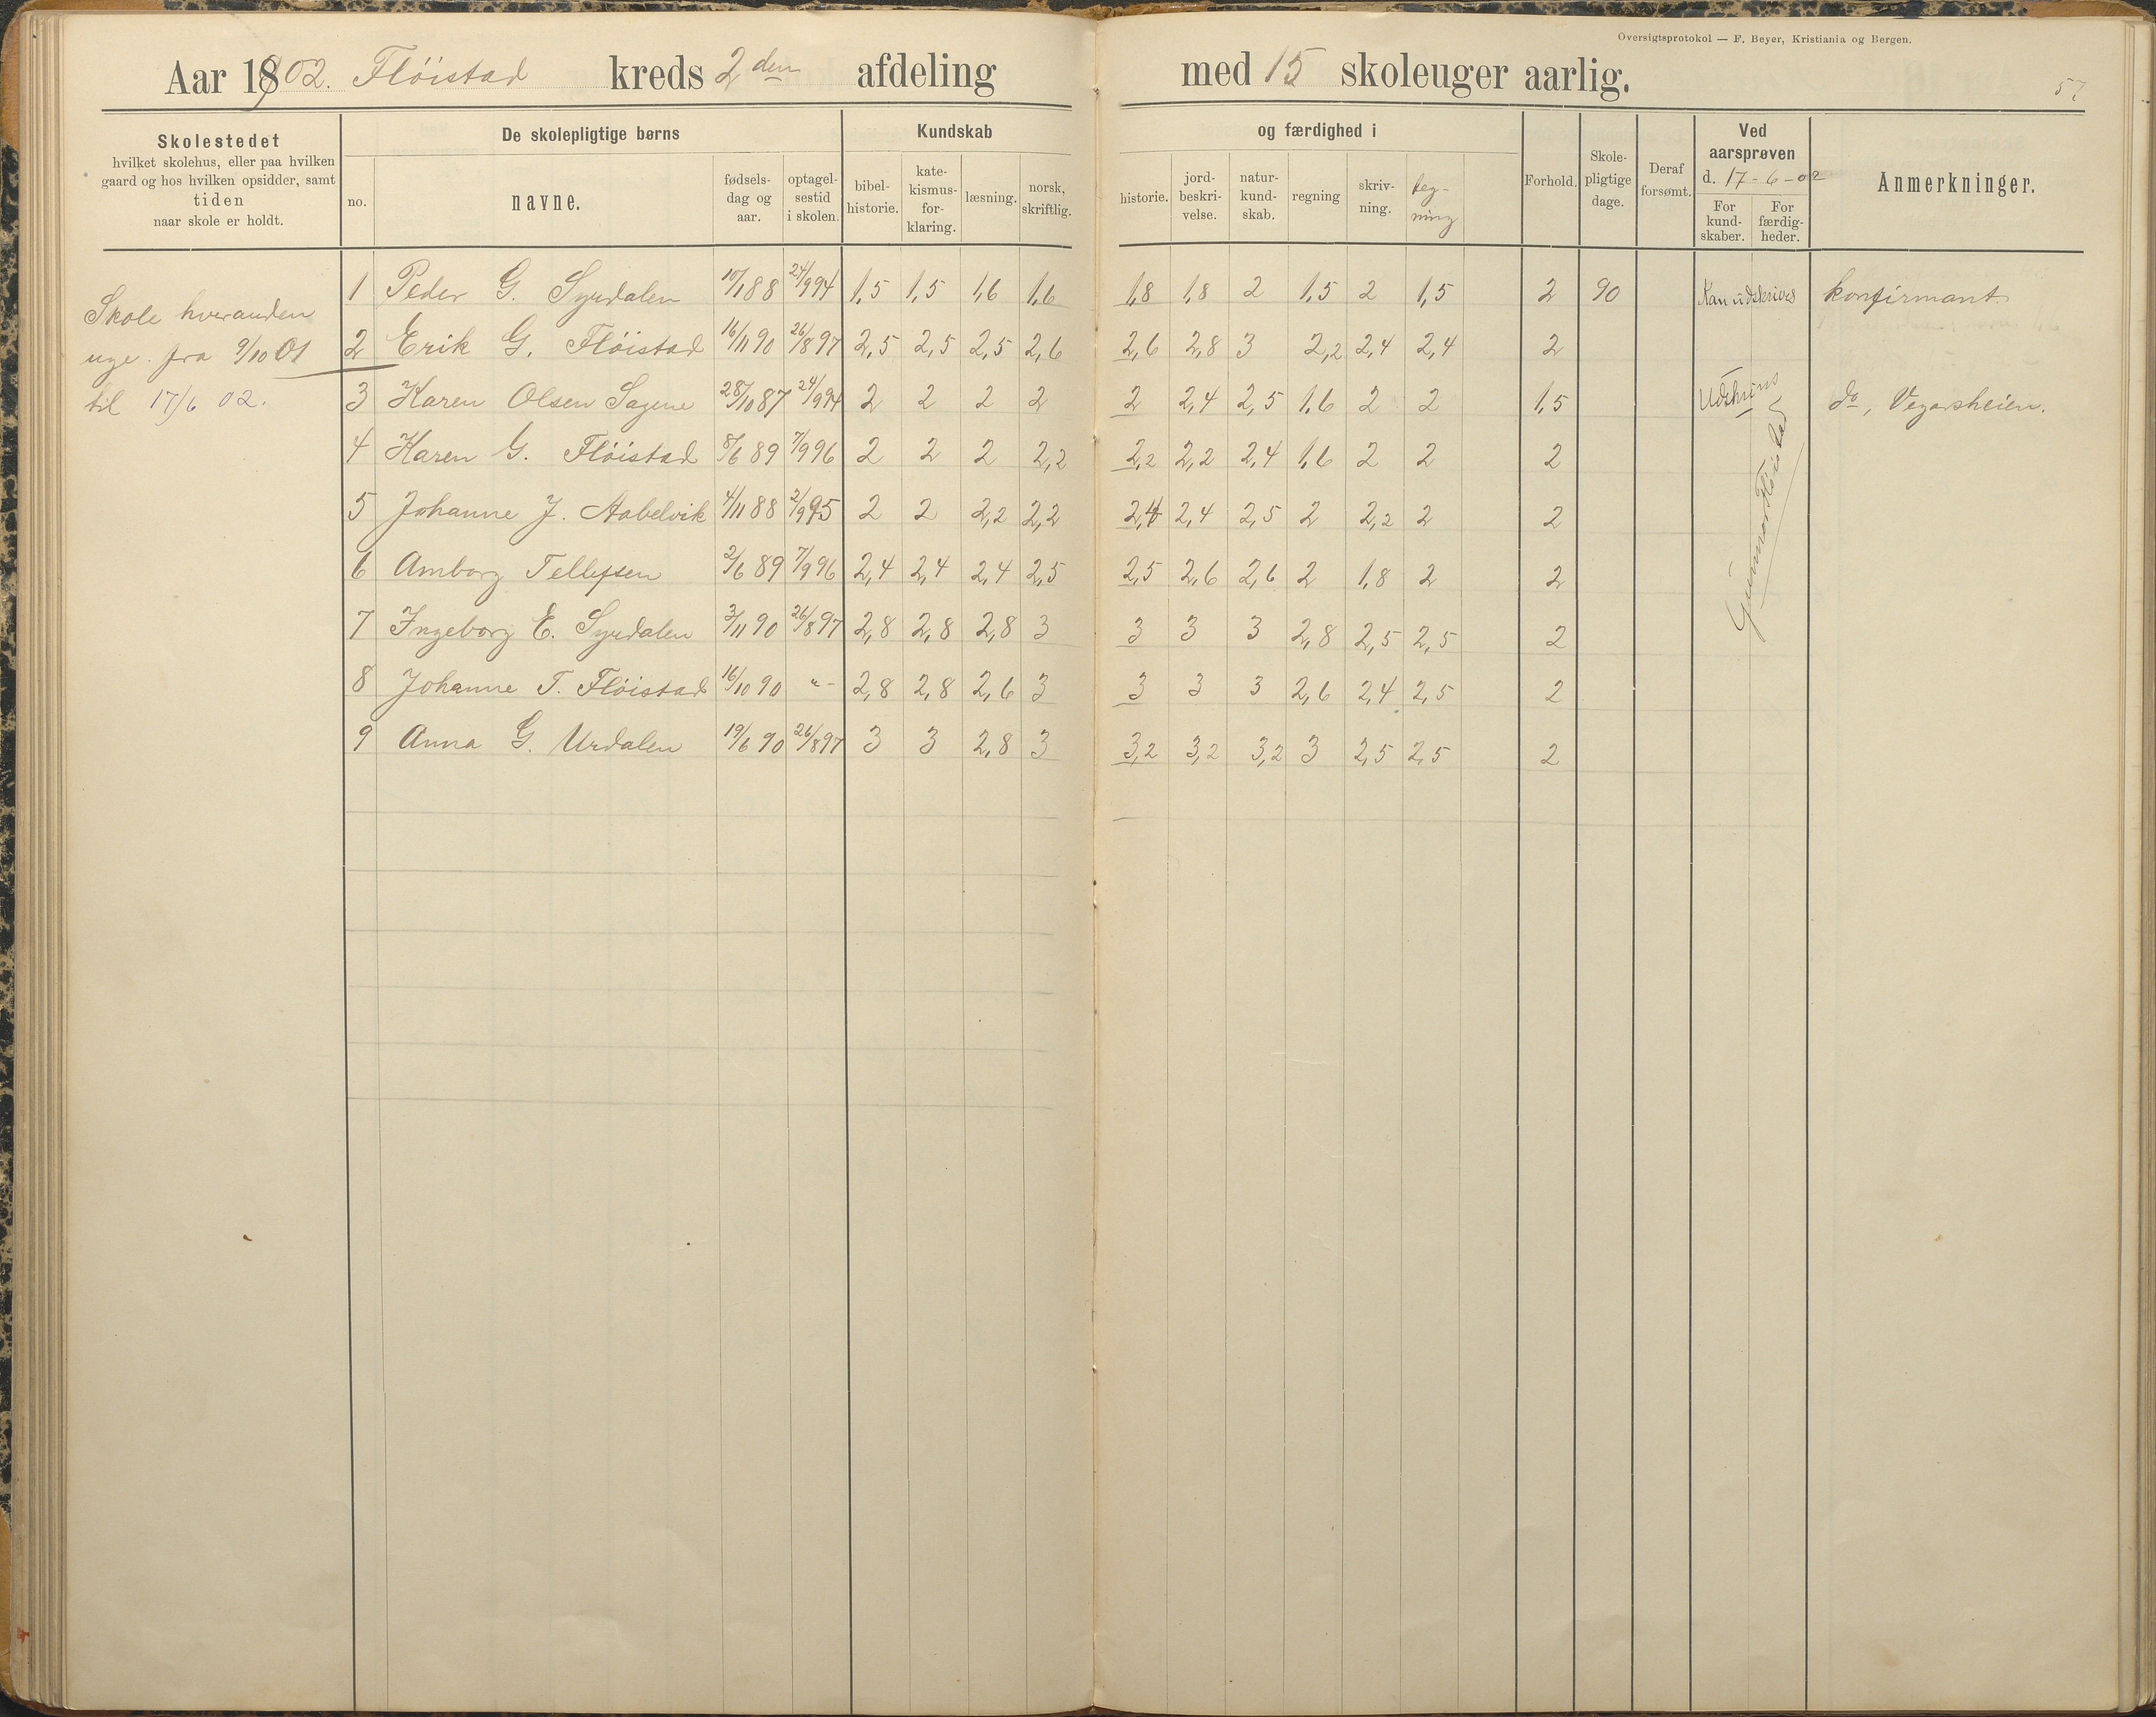 Oversigtsprotokol — F. Beyer, Kristiania og Bergen.
Aar 1902. Flöistad kreds 2den afdeling med 15 skoleuger aarlig.
57
Skolestedet
hvilket skolehus, eller paa hvilken
gaard og hos hvilken opsidder, samt
tiden
naar skole er holdt.
De skolepligtige børns
no.
navne.
fødsels-
dag og
aar.
optagel-
sestid
i skolen.
Kundskab
bibel-
historie.
kate-
kismus-
for-
klaring.
læsning.
norsk,
skriftlig.
og færdighed i
historie.
jord-
beskri-
velse.
natur-
kund-
skab.
regning
skriv-
ning.
teg-
ning
Forhold.
Skole-
pligtige
dage.
Deraf
forsømt.
Ved
aarsprøven
d. 17-6-02
For
kund-
skaber.
For
færdig-
heder.
Anmerkninger.
Skole hveranden
uge fra 9/10 01
til 17/6 02.
1 Peder G. Syrdalen 10/1 88 24/9 94 1,5 1,5 1,6 1,6 1,8 1,8 2 1,5 2 1,5 2 90 Kan udskrives konfirmant
2 Erik G. Flöistad 16/11 90 26/8 97 2,5 2,5 2,5 2,6 2,6 2,8 3 2,2 2,4 2,4 2
3 Karen Olsen Sagene 28/10 87 24/9 94 2 2 2 2 2 2,4 2,5 1,6 2 2 1,5 do, Vegarsheien.
4 Karen G. Flöistad 8/6 89 7/9 96 2 2 2 2,2 2,2 2,2 2,4 1,6 2 2 2
5 Johanne J. Aabelvik 4/11 88 2/9 95 2 2 2,2 2,2 2,4 2,4 2,5 2 2,2 2 2
6 Amborg Tellefsen 2/6 89 7/9 96 2,4 2,4 2,4 2,5 2,5 2,6 2,6 2 1,8 2 2
7 Ingeborg E. Syrdalen 3/11 90 26/8 97 2,8 2,8 2,8 3 3 3 3 2,8 2,5 2,5 2
8 Johanne T. Flöistad 16/10 90 "- 2,8 2,8 2,6 3 3 3 3 2,6 2,4 2,5 2
9 Anna G. Urdalen 19/6 90 26/8 97 3 3 2,8 3 3,2 3,2 3,2 3 2,5 2,5 2
Gunnar Flöistad